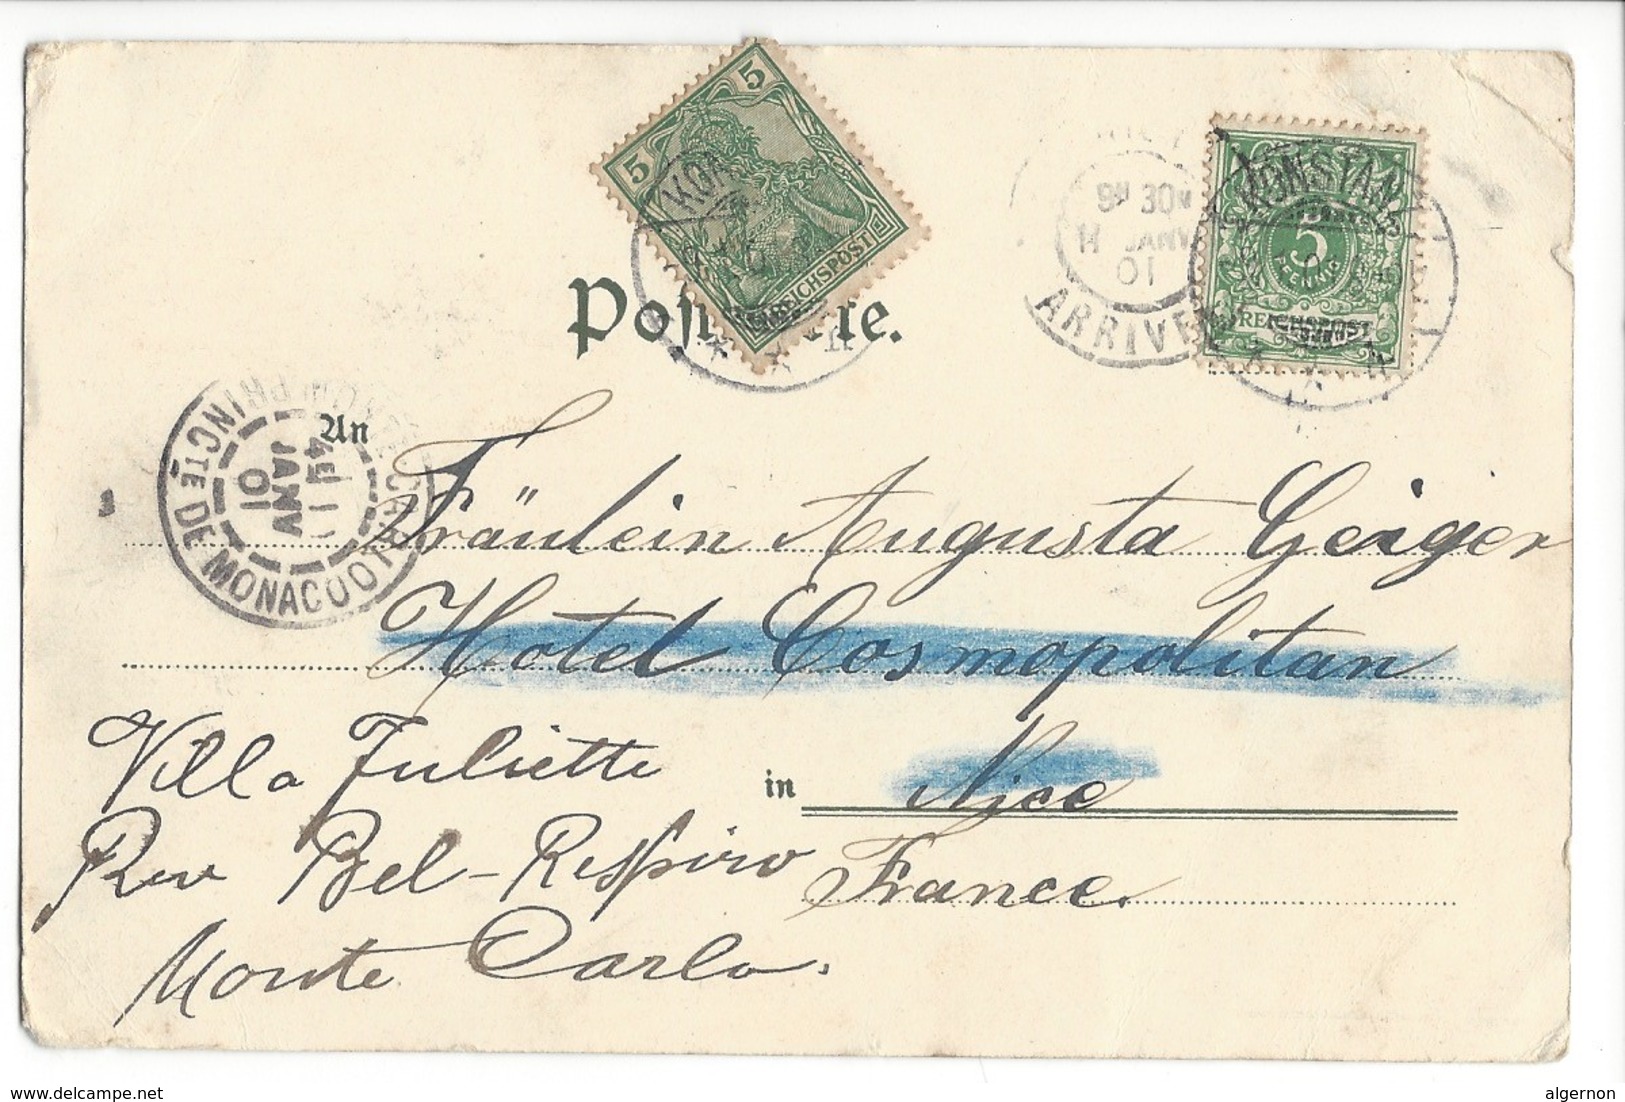 5
5
REICHSPOST
KON
KONSTAN
5
PFENNIG
REICHSPOST
9H 30M
11 JANV
01
ARRIVE
Postkarte.
An
PRINCTE DE MONACO
JANV
01
Fräulein Augusta Geiger
Hotel Cosmopolitan
in Nice
France.
Villa Juliette
Rue Bel-Respiro
Monte Carlo.
www.delcampe.net
algernon